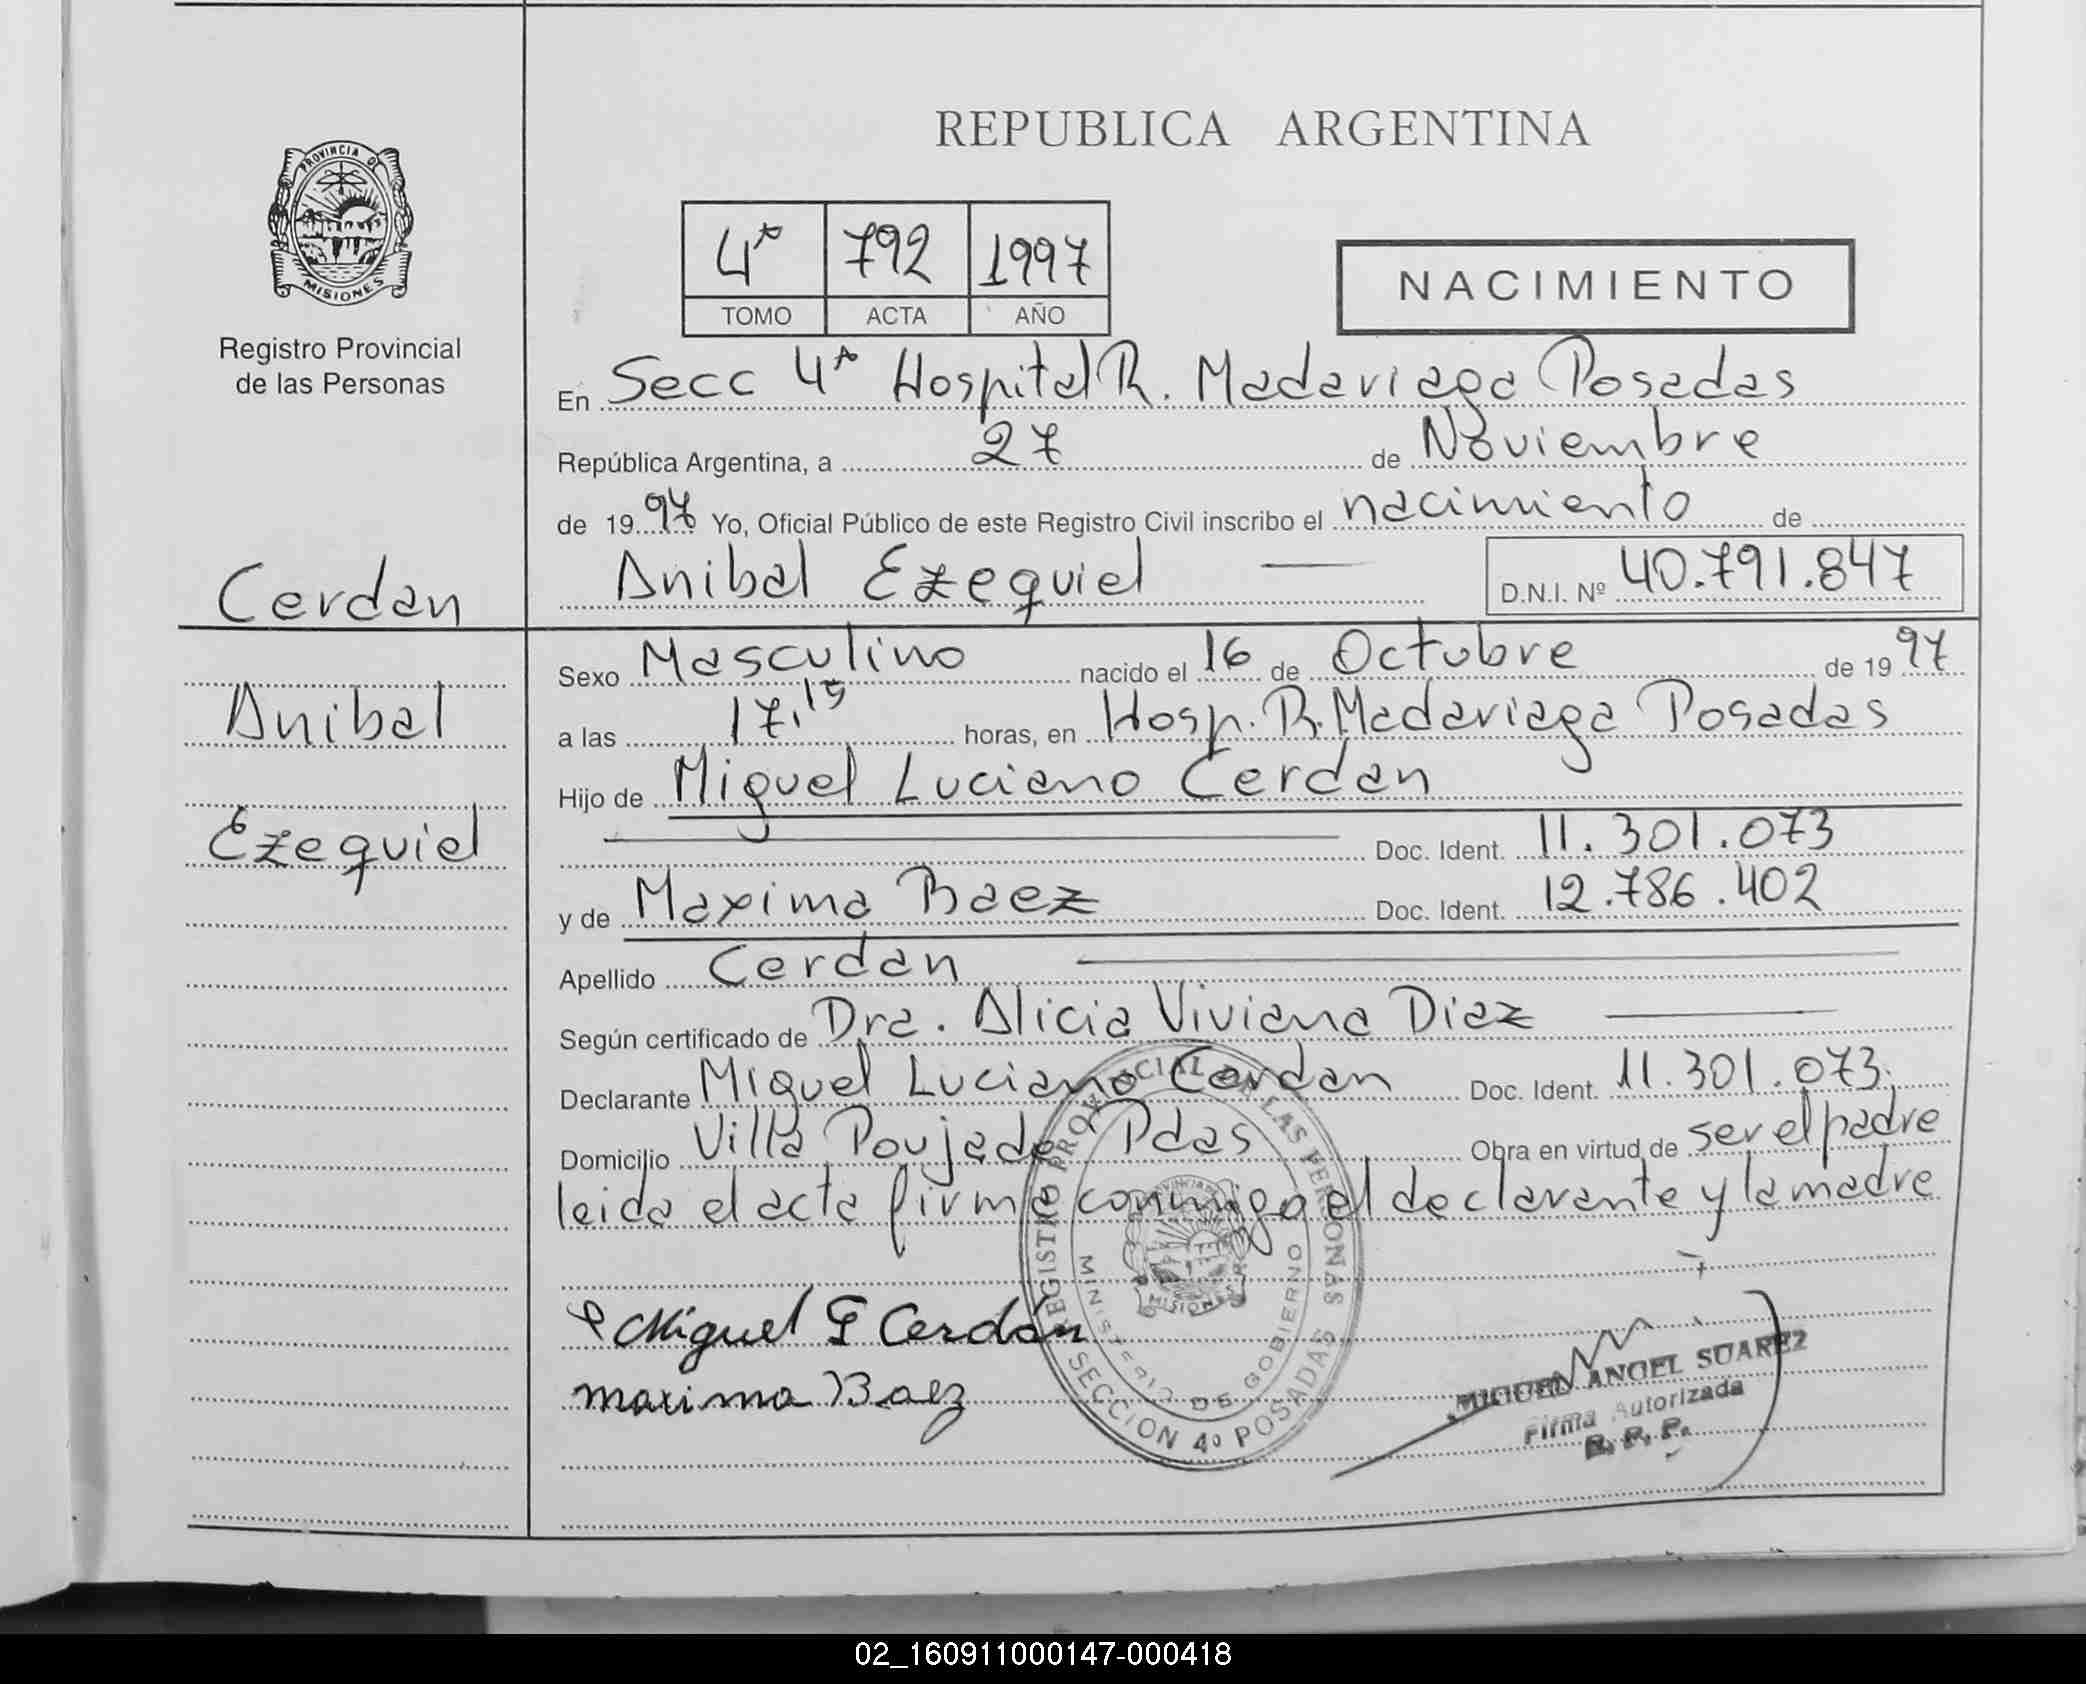 REPUBLICA ARGENTINA
PROVINCIA DE
MISIONES
Registro Provincial
de las Personas
4ª 792 1997
TOMO ACTA AÑO
NACIMIENTO
En Secc 4ª Hospital R. Madariaga Posadas
República Argentina, a 27 de Noviembre
de 1997 Yo, Oficial Público de este Registro Civil inscribo el nacimiento de
Anibal Ezequiel — D.N.I. Nº 40.791.847
Cerdan
Anibal
Ezequiel
Sexo Masculino nacido el 16 de Octubre de 1997
a las 17,15 horas, en Hosp. R. Madariaga Posadas
Hijo de Miguel Luciano Cerdan
Doc. Ident. 11.301.073
y de Maxima Baez Doc. Ident. 12.786.402
Apellido Cerdan
Según certificado de Dra. Alicia Viviana Diaz
Declarante Miguel Luciano Cerdan Doc. Ident. 11.301.073,
Domicilio Villa Poujade Pdas Obra en virtud de ser el padre
leida el acta firma conmigo el declarante y la madre
Miguel Cerdán
maxima Baez
REGISTRO PROVINCIAL DE LAS PERSONAS
MINISTERIO DE GOBIERNO
PROVINCIA DE
MISIONES
SECCION 4ª POSADAS
MIGUEL ANGEL SUAREZ
Firma Autorizada
R. P. P.
02_160911000147-000418